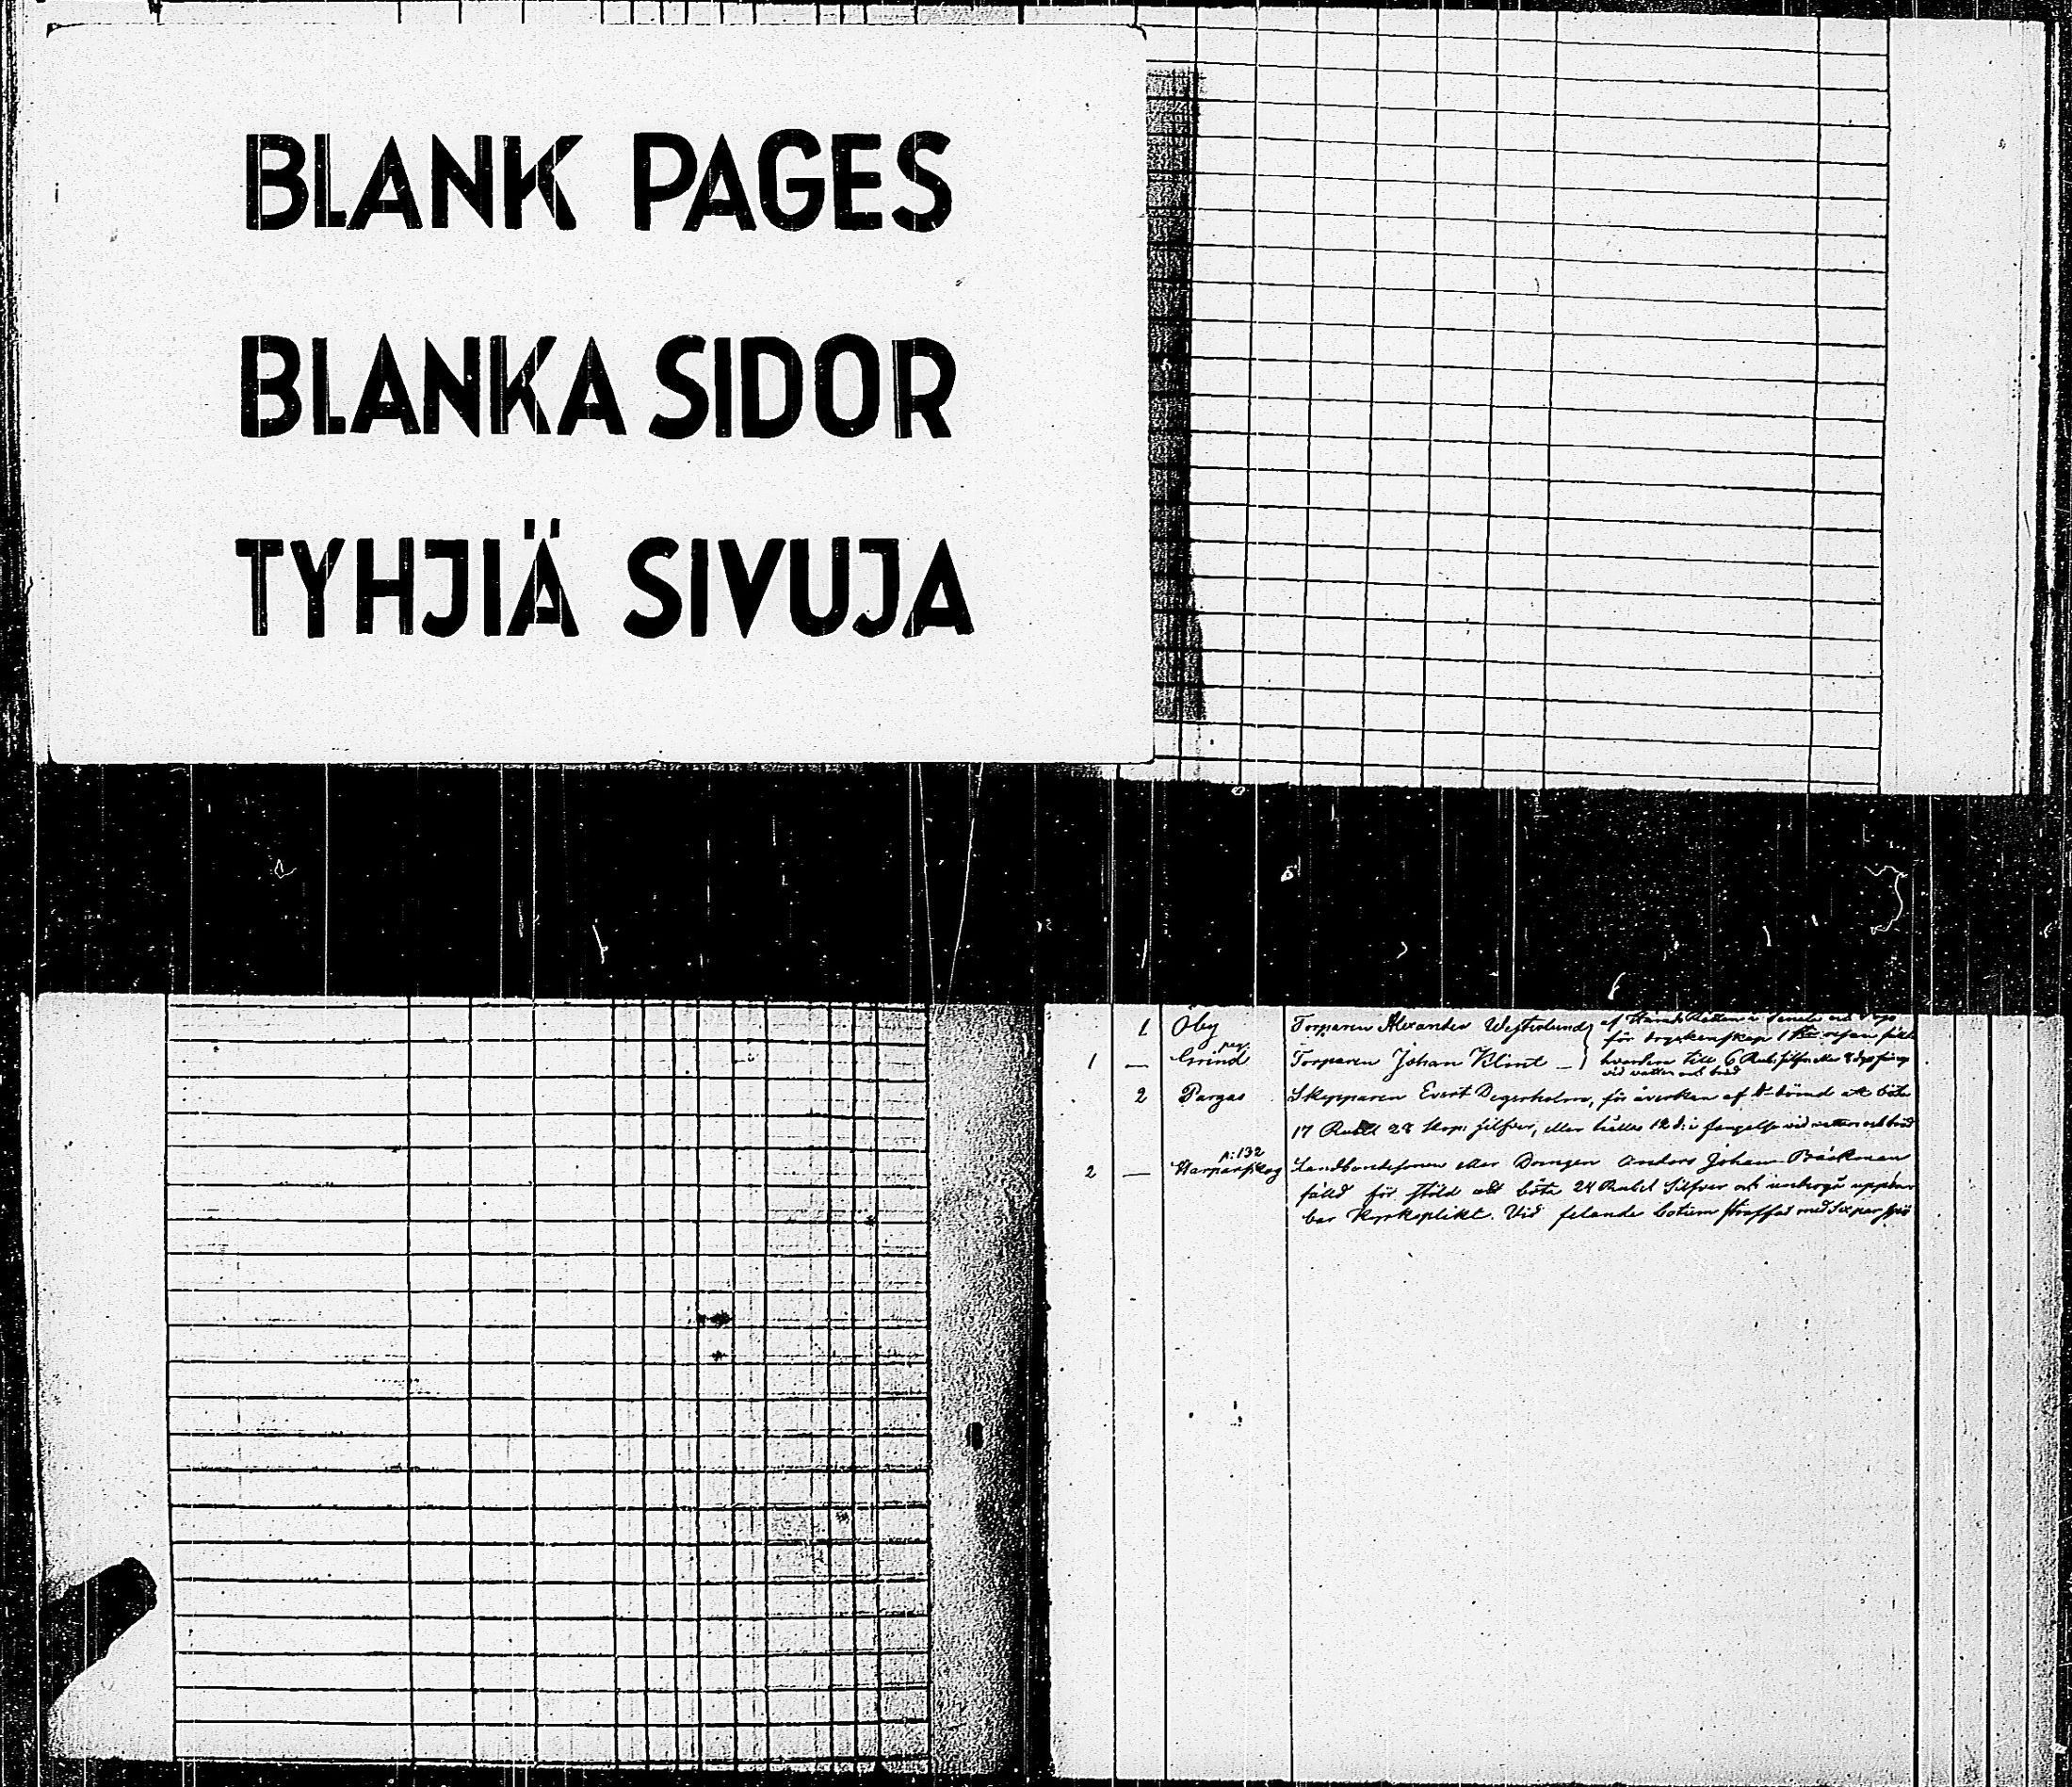 BLANK PAGES
BLANKA SIDOR
TYHJIÄ SIVUJA
1 Oby Torparen Alexander Westerlund af
för 1
1 — Grind Torparen Johan Klint — hvardera till 6 Rub. silfver eller 8
vid vatten och bröd
2 Pargas Skepparen Evert Degerholm, för åverkan af att böta
17 Rubel 28 kop. silfver, eller hållas 12 d. i fängelse vid vatten och bröd
p: 132
2 — Drengen Anders Johan Bäckman
fälld för stöld att böta 24 Rubel Silfver och undergå uppen-
bar Kyrkoplikt. Vid felande botum straffas med Sex par spö